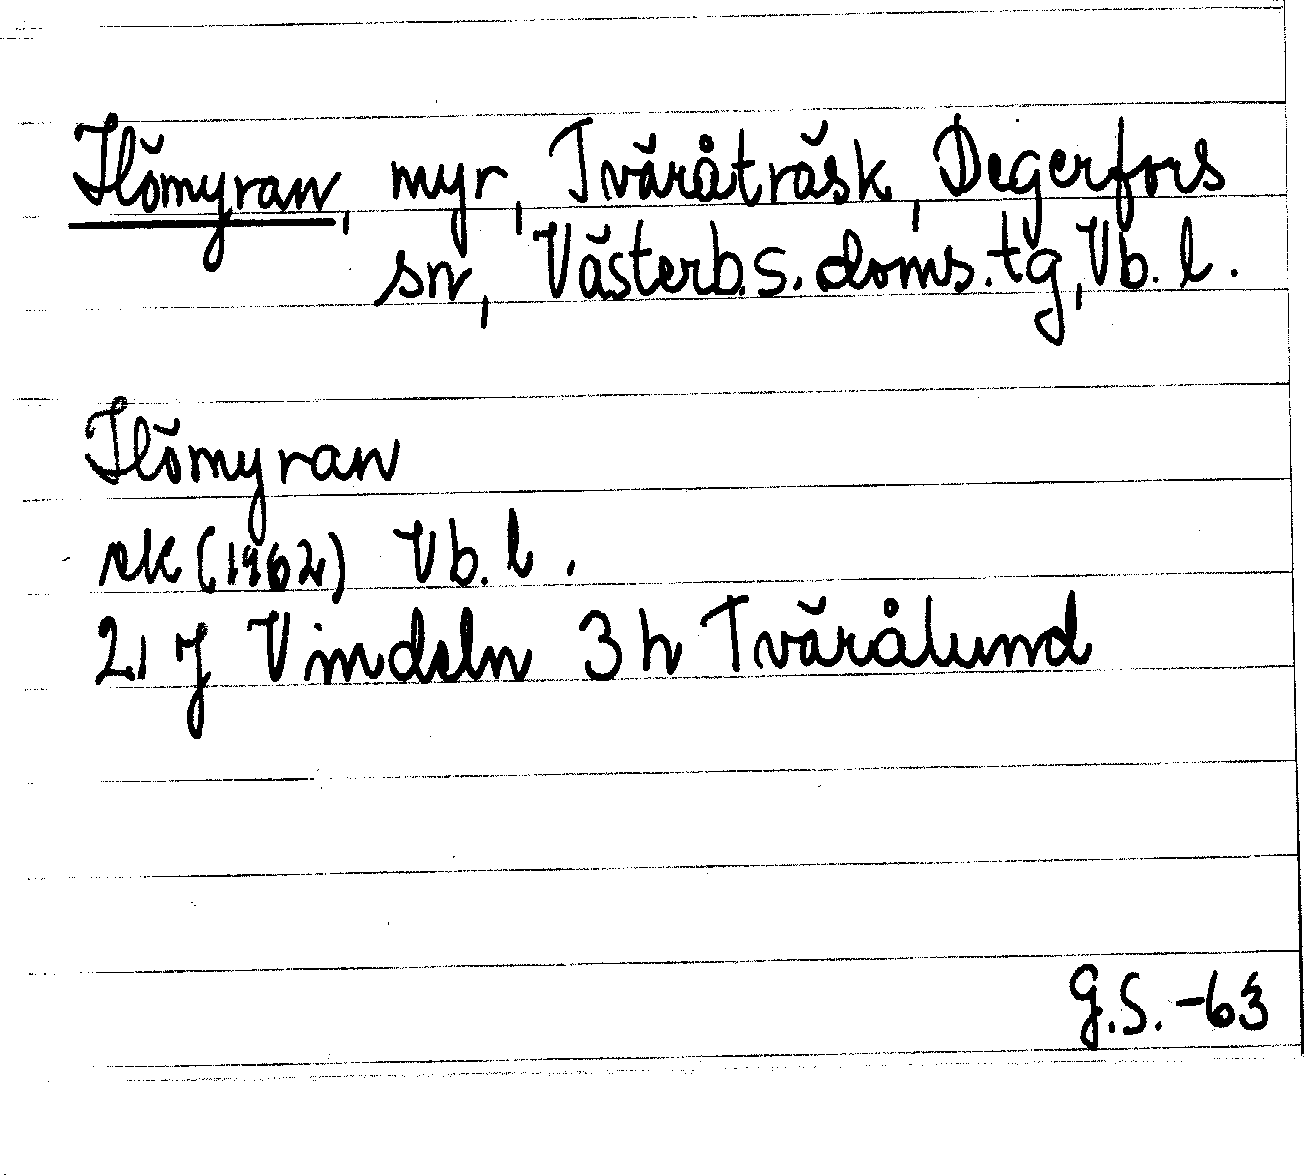 Flömyran, myr, Tväråträsk, Degerfors
sn, Västerb.s. doms.tg, Vb. l.
Flömyran
ek (1962) Vb. l.
21 J Vindeln 3 h Tvärålund
G.S. -63